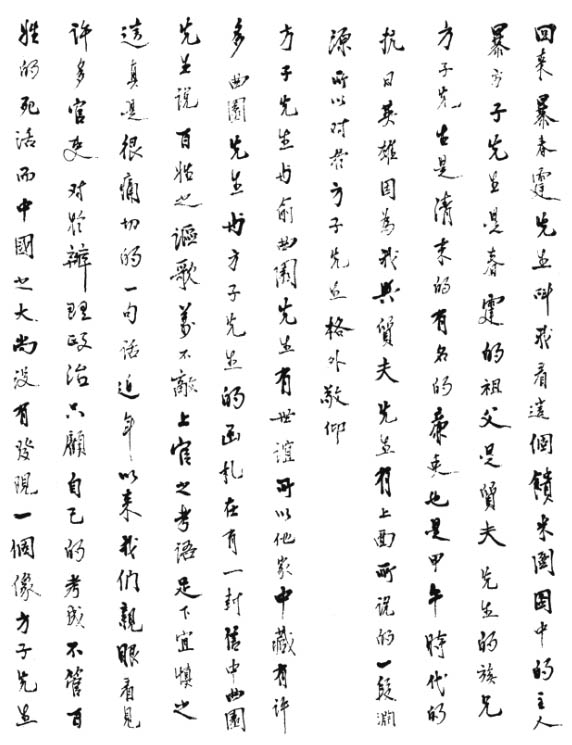 回来暴春霆先生叫我看這個饋米圖圖中的主人
暴方子先生是春霆的祖父是質夫先生的族兄
方子先生是清末的有名的廉吏也是甲午時代的
抗日英雄因為我與質夫先生有上面所説的一段淵
源所以对於方子先生格外敬仰
方子先生与俞曲園先生有世誼所以他家中藏有许
多曲園先生与方子先生的函札在有一封信中曲園
先生说百姓之謳歌萬不敵上官之考語足下宜慎之
這真是很痛切的一句话近年以来我们親眼看見
许多官吏对於辦理政治只顧自己的考成不管百
姓的死活而中國之大尚沒有發現一個像方子先生